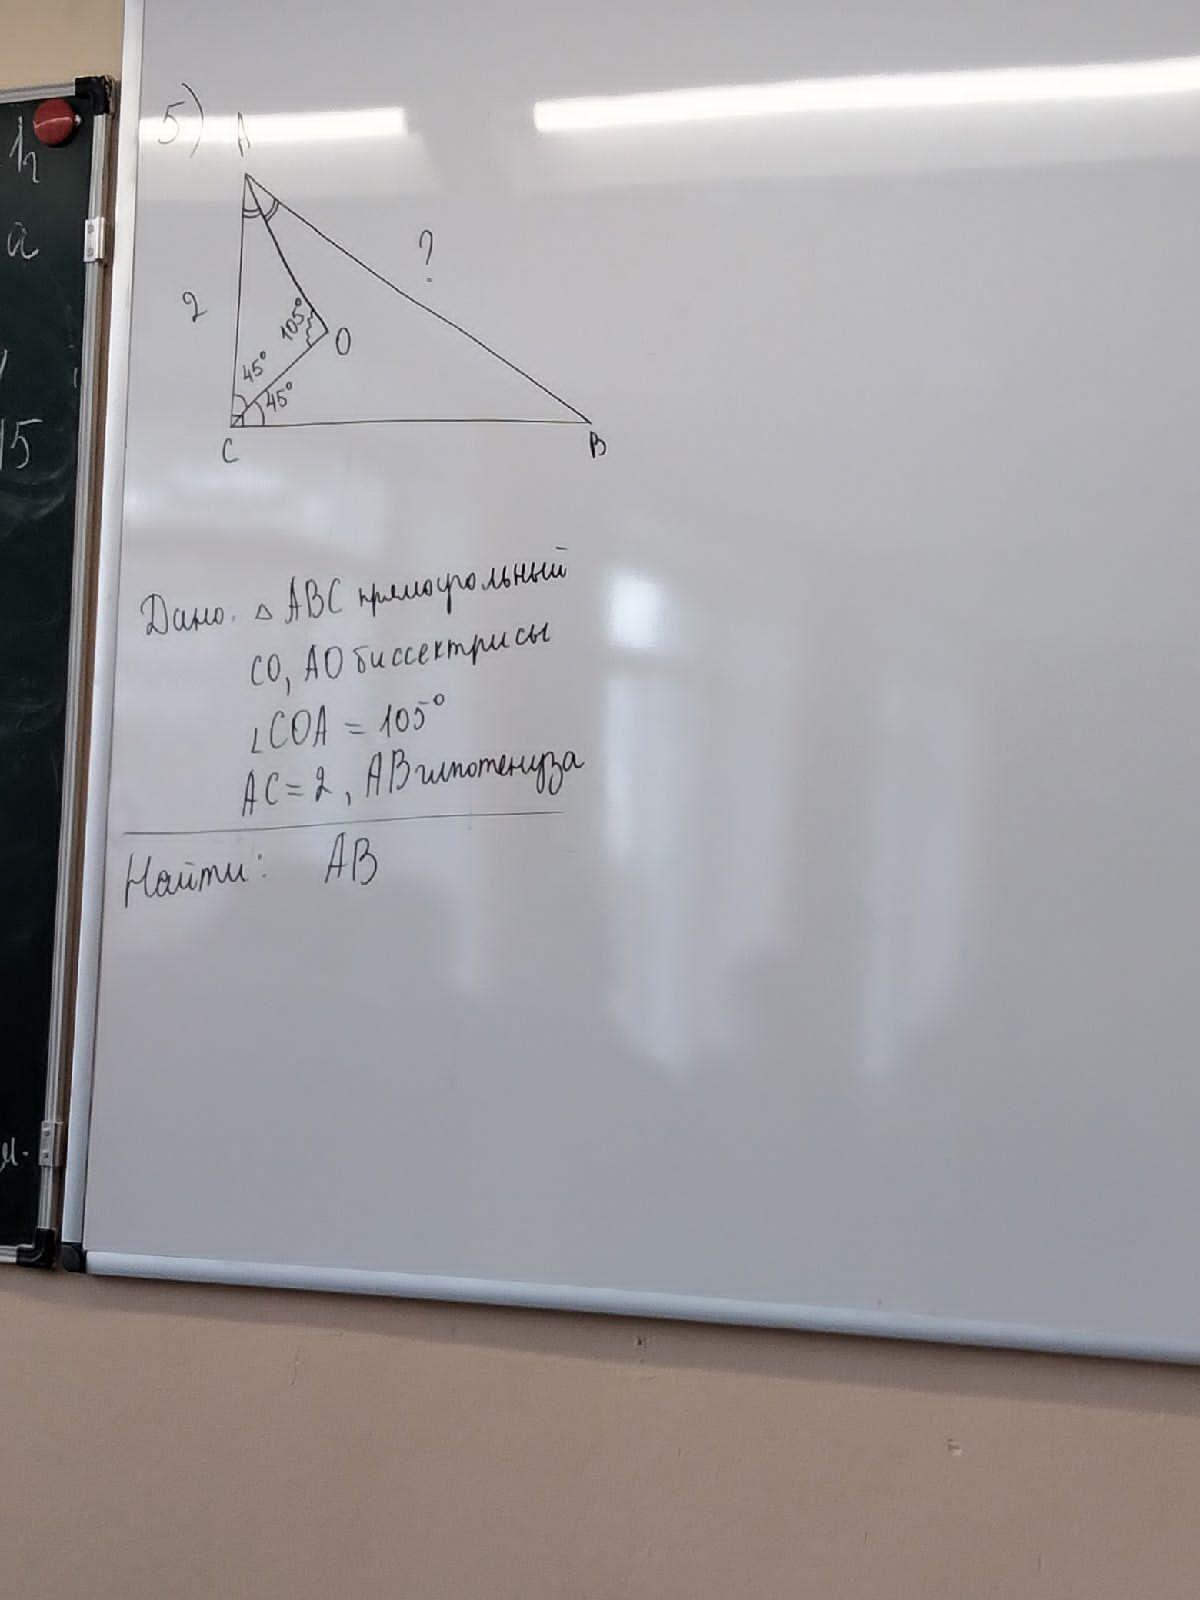 h
a
15
м.
5)
A
?
2
105°
O
45°
45°
C
B
Дано. △ ABC прямоугольный
CO, AO биссектрисы
∠COA = 105°
AC = 2, AB гипотенуза
Найти: AB